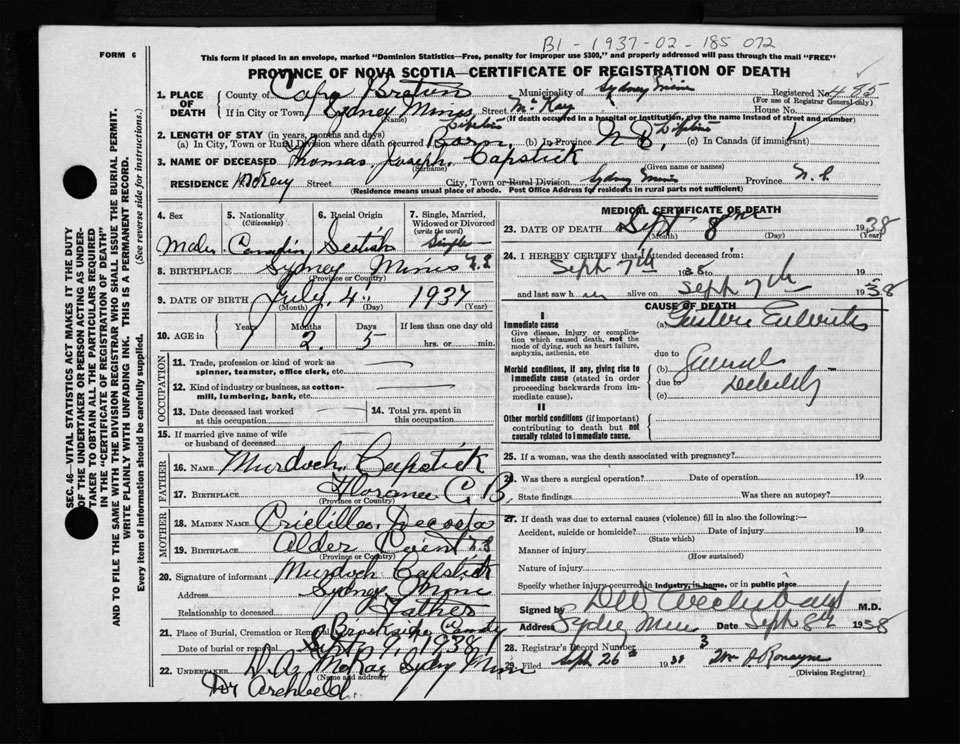 B1 - 1937-02-185072
FORM 6
This form if placed in an envelope, marked "Dominion Statistics—Free, penalty for improper use $300," and properly addressed will pass through the mail "FREE"
PROVINCE OF NOVA SCOTIA—CERTIFICATE OF REGISTRATION OF DEATH
1. PLACE OF DEATH
County of Cape Breton Municipality of Sydney Mines Registered No. 485
(For use of Registrar General only)
If in City or Town Sydney Mines Street McKay House No.
(Name) (If death occurred in a hospital or institution, give the name instead of street and number)
2. LENGTH OF STAY (in years, months and days)
(a) In City, Town or Rural Division where death occurred Born (b) In Province (c) In Canada (if immigrant)
3. NAME OF DECEASED Thomas Joseph Capstick
(Surname) (Given name or names)
RESIDENCE McKay Street City, Town or Rural Division Sydney Mines Province N.S.
(Residence means usual place of abode. Post Office Address for residents in rural parts not sufficient)
4. Sex 5. Nationality (Citizenship) 6. Racial Origin 7. Single, Married, Widowed or Divorced (write the word)
Male Canadian Scotish Single
8. BIRTHPLACE Sydney Mines N.S.
(Province or Country)
9. DATE OF BIRTH July 4 1937
(Month) (Day) (Year)
10. AGE in Years Months Days If less than one day old
1 2 5 hrs. or min.
OCCUPATION
11. Trade, profession or kind of work as spinner, teamster, office clerk, etc.
12. Kind of industry or business, as cotton-mill, lumbering, bank, etc.
13. Date deceased last worked at this occupation 14. Total yrs. spent in this occupation
15. If married give name of wife or husband of deceased
FATHER
16. NAME Murdoch Capstick
17. BIRTHPLACE Florence C.B.
(Province or Country)
MOTHER
18. MAIDEN NAME
19. BIRTHPLACE Alder N.S.
(Province or Country)
20. Signature of informant Murdoch Capstick
Address Sydney Mines
Relationship to deceased Father
21. Place of Burial, Cremation or Removal Brookside
Date of burial or removal Sept 9, 1938
22. UNDERTAKER McKay Sydney Mines
(Name and address)
Dr Archbold.
MEDICAL CERTIFICATE OF DEATH
23. DATE OF DEATH Sept 8 1938
(Month) (Day) (Year)
24. I HEREBY CERTIFY that I attended deceased from:
Sept 7th 19 to 19
and last saw h alive on Sept 7th 1938
CAUSE OF DEATH
I
Immediate cause (a)
Give disease, injury or complication which caused death, not the mode of dying, such as heart failure, asphyxia, asthenia, etc
due to
Morbid conditions, if any, giving rise to immediate cause (stated in order proceeding backwards from immediate cause). (b) General
due to Debility
(c)
II
Other morbid conditions (if important) contributing to death but not causally related to immediate cause.
25. If a woman, was the death associated with pregnancy?
26. Was there a surgical operation? Date of operation 19
State findings Was there an autopsy?
27. If death was due to external causes (violence) fill in also the following:—
Accident, suicide or homicide? Date of injury 19
(State which)
Manner of injury
(How sustained)
Nature of injury
Specify whether injury occurred in industry, in home, or in public place
Signed by Archibald M.D.
Address Sydney Mines Date Sept 8th 1938
28. Registrar's Record Number 3
29. Filed Sept 26 1938 Wm A Ronayne
(Division Registrar)
SEC. 46—VITAL STATISTICS ACT MAKES IT THE DUTY OF THE UNDERTAKER OR PERSON ACTING AS UNDERTAKER TO OBTAIN ALL THE PARTICULARS REQUIRED IN THE "CERTIFICATE OF REGISTRATION OF DEATH" AND TO FILE THE SAME WITH THE DIVISION REGISTRAR WHO SHALL ISSUE THE BURIAL PERMIT.
WRITE PLAINLY WITH UNFADING INK. THIS IS A PERMANENT RECORD.
Every item of information should be carefully supplied. (See reverse side for instructions).